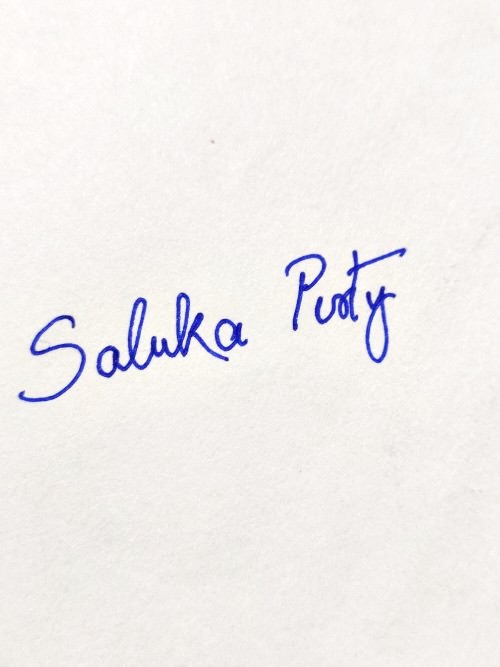 Saluka Purty